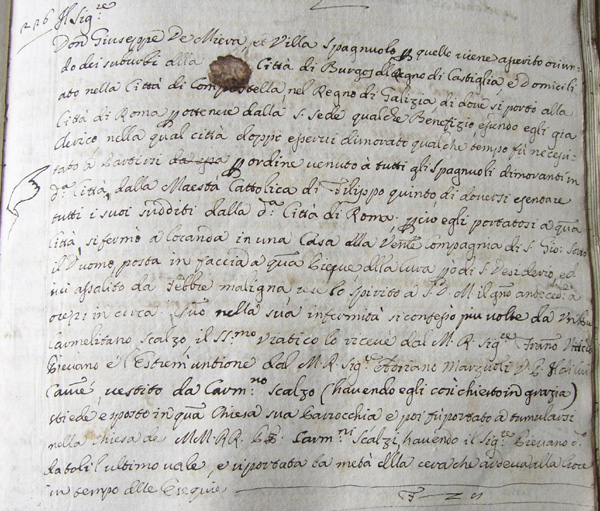 226 Il Sig.re
Don Giuseppe De Mieva, et Villa Spagnuolo p quello viene asperito oriun-
do dei suburbi alla Città di Burgos al Regno di Castiglia e Domicili
ato nella Città di Compostella nel Regno di Galizia di dove si portò alla
Città di Roma p ottenere dalla S. Sede qualche Benefizio essendo egli già
Clerico nella qual città doppo esservi dimorato qualche tempo fù necessi-
tato à partirsi da essa p ordine venuto à tutti gli Spagnuoli dimoranti in
d.a Città dalla Maestà Cattolica di Filippo quinto di doversi esentare
tutti i suoi sudditi dalla d.a Città di Roma. p ciò egli portatosi a qua
Città si fermò a locanda in una Casa alla Ven.le Compagnia di S. Gio: Sotto
il Duomo posta in faccia a qua Pieve alla Cura p di S. Desiderio, ed
ivi assalito da Febbre maligna rese lo spirito à S. D. M. il g.no a
in circa. Nella sua infermità si confessò più volte da un
Carmelitano Scalzo il SS.mo Viatico lo ricevè dal M. R. Sig.re
Pievano e l'Estrem'untione dal M. R. Sig.re Adriano Marzuoli
vestito da Carm.no Scalzo (havendo egli così chiesto in grazia)
stiede esposto in qua Chiesa sua Parrocchia e poi fù portato à tumularsi
nella Chiesa de MM. RR. PP. Carm.ni Scalzi, havendo il Sig.re Pievano
datoli l'ultimo vale, e riportata la metà della cera che ardeva alla Croce
in tempo delle Esequie